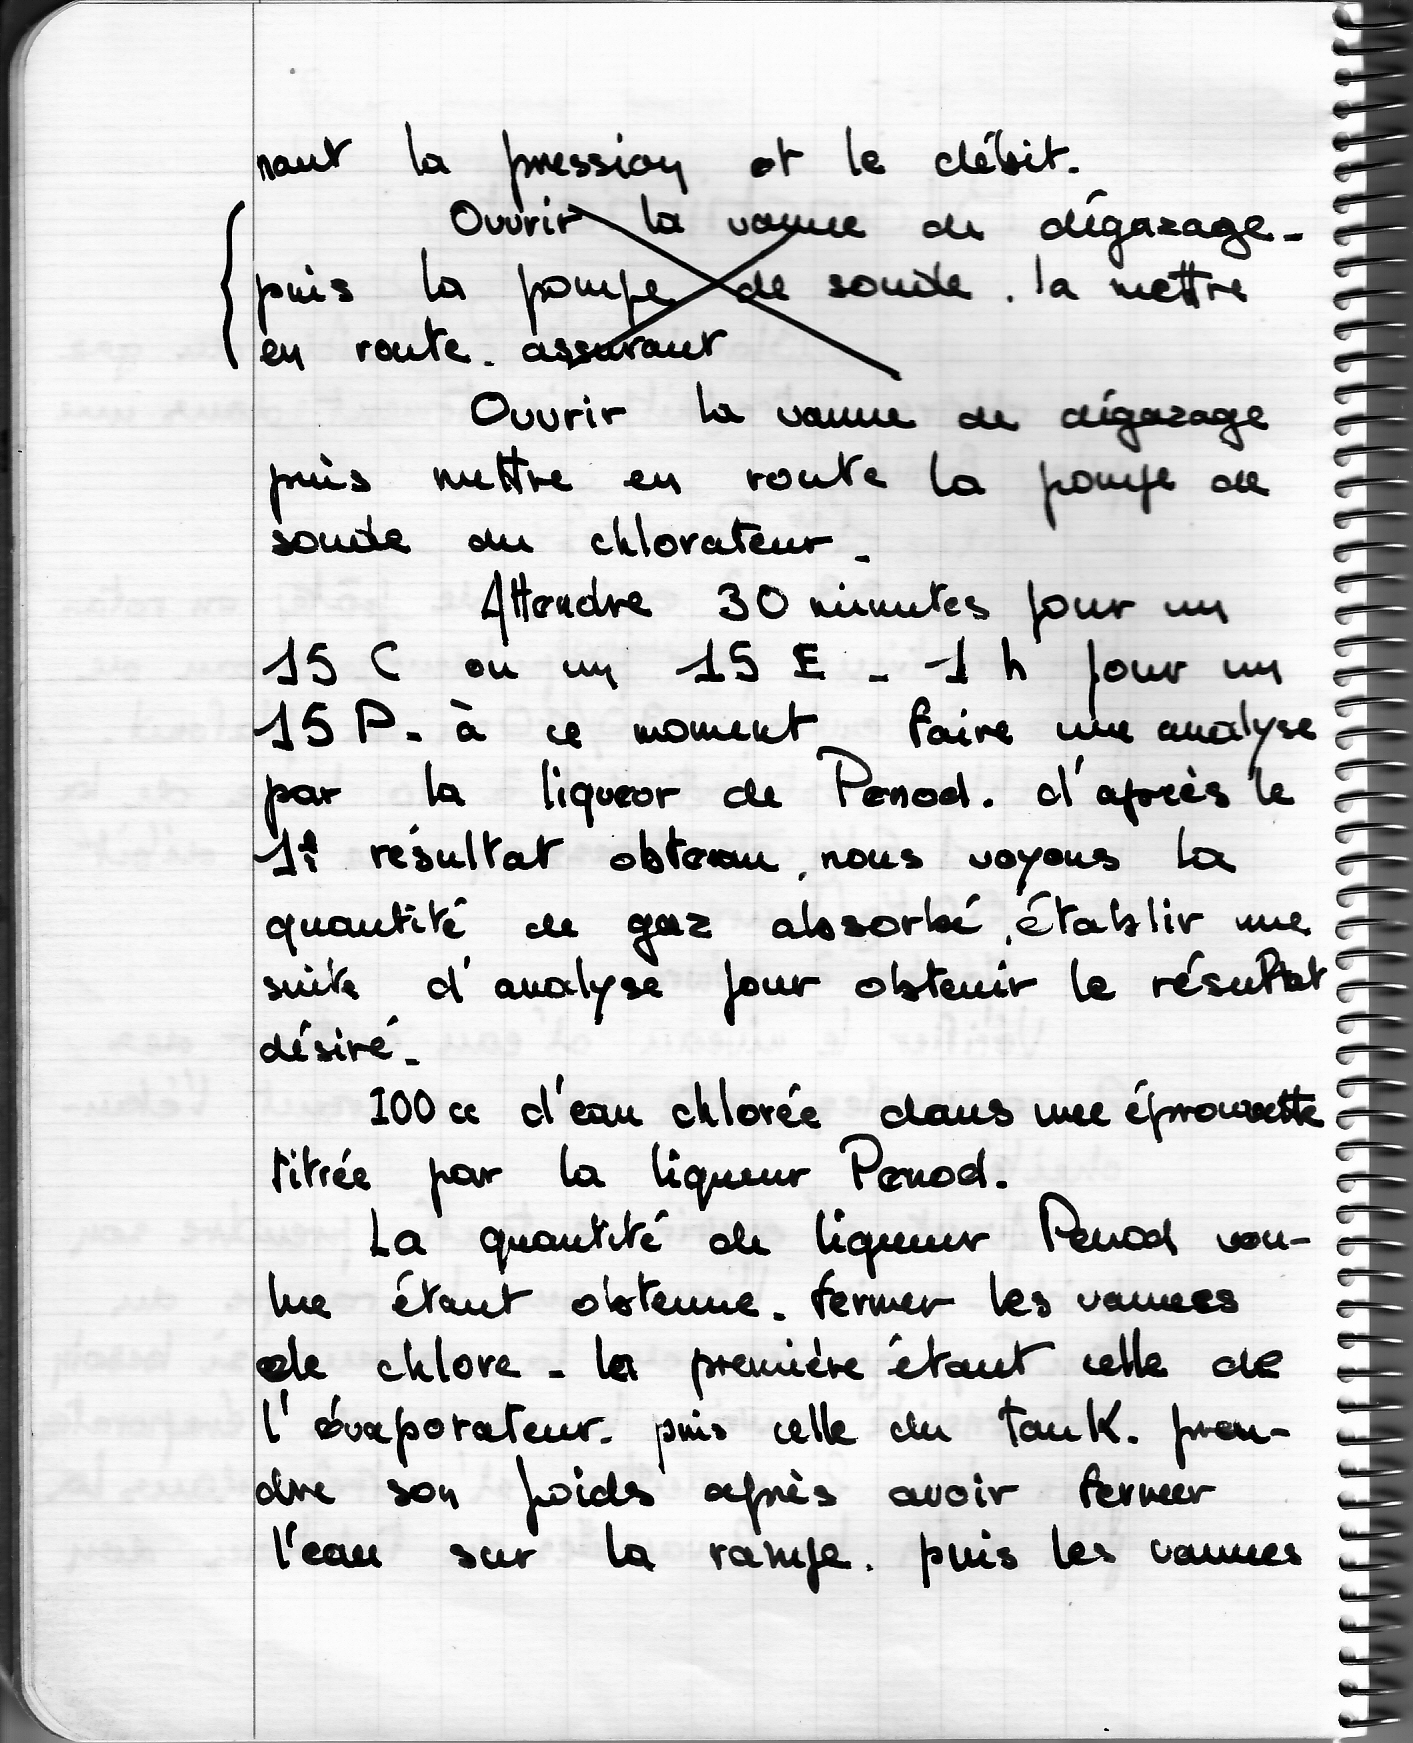 nant la pression et le débit.
Ouvrir la vanne de dégazage-
puis la pompe de soude. la mettre
en route. assurant
Ouvrir la vanne de dégazage
puis mettre en route la pompe de
soude du chlorateur.
Attendre 30 minutes pour un
15 C ou un 15 E - 1 h pour un
15 P. à ce moment faire une analyse
par la liqueor de Penod. d'après le
1er résultat obtenu, nous voyons la
quantité de gaz absorbé, établir une
suite d'analyse pour obtenir le résultat
désiré.
100 cc d'eau chlorée dans une éprouvette
titrée par la liqueur Penod.
La quantité de liqueur Penod vou-
lue étant obtenue. fermer les vannes
de chlore - la première étant celle de
l'évaporateur. puis celle du tank. pren-
dre son poids après avoir fermer
l'eau sur la rampe. puis les vannes